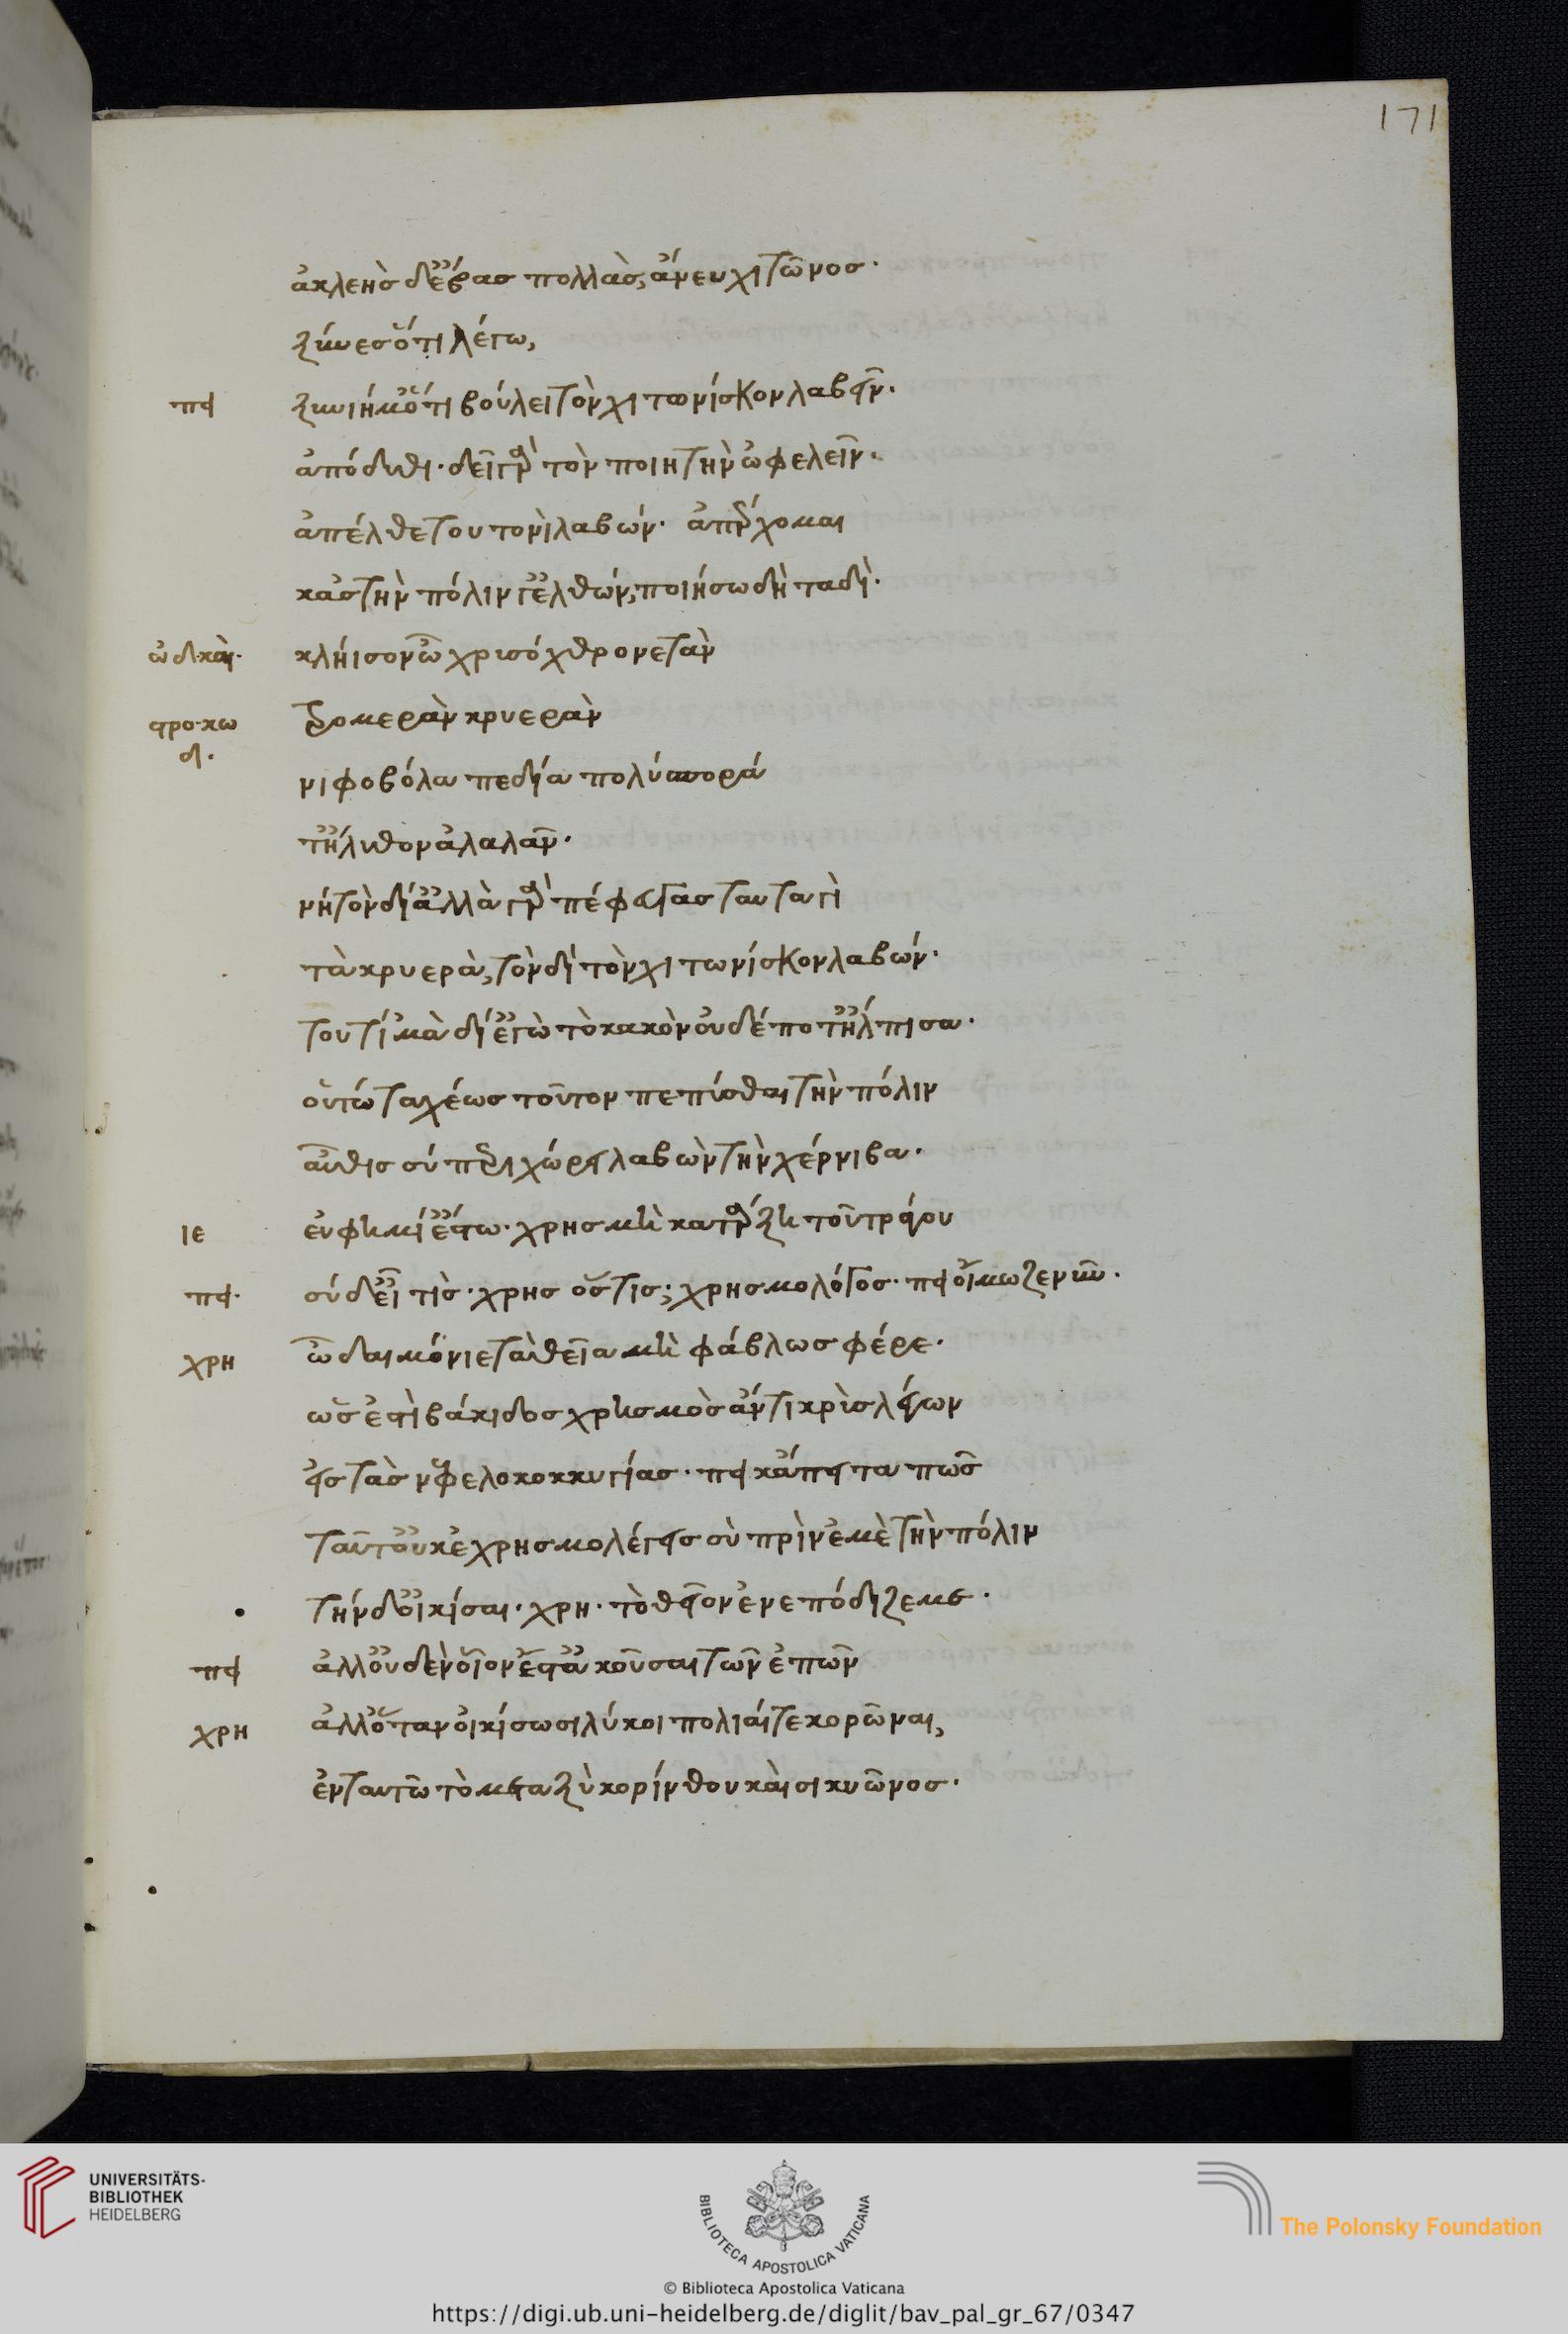 171
ἀκλεὴς δ' ἔβας πολλὰς, ἄνευ χιτῶνος·
ξύνες ὅτι λέγω,
πει ξυνίημ' ὅτι βούλει τὸν χιτωνίσκον λαβεῖν·
ἀπόδυθι· δεῖ γὰρ τὸν ποιητὴν ὠφελεῖν·
ἀπέλθε τουτονὶ λαβών· ἀπέρχομαι
κἀς τὴν πόλιν γ' ἐλθών, ποιήσω δὴ ταδί·
ὠδ. καὶ. κλήισον ὦ χρισόχθρονε τὰν
προ·κω δ. τρομερὰν κρυερὰν
νιφοβόλα πεδία πολύσπορά
τ' ἤλυθον ἀλαλαν·
νὴ τὸν δί' ἀλλὰ γὰρ πέφευγας ταυταγὶ
τὰ κρυερὰ, τονδὶ τὸν χιτωνίσκον λαβών·
τουτὶ μὰ δί' ἐγὼ τὸ κακὸν οὐδέποτ' ἤλπισα·
οὑτώ ταχέως τοῦτον πεπύσθαι τὴν πόλιν
αὖθις σύ περιχώρει λαβὼν τὴν χέρνιβα·
ιε εὐφημί' ἔστω· χρησ μὴ κατάρξη τοῦ τράγου
πει· σύ δ' εἶ τίς· χρησ ὅστις; χρησμολόγος· πει οἴμωζε νῦν·
χρη ὦ δαιμόνιε τὰ θεῖα μὴ φάβλως φέρε·
ὡς ἔστι βάκιδος χρησμὸς ἄντικρὺς λέγων
εἰς τὰς νεφελοκοκκυγίας· πει κἄπειτα πῶς
ταῦτ' οὐκ ἐχρησμολέγεις σὺ πρὶν ἐμὲ τὴν πόλιν
τήνδ' οἰκίσαι· χρη· τὸ θεῖον ἐνεπόδιζέ με·
πει ἀλλ' οὐδὲν οἷον ἔστ' ἀκοῦσαι τῶν ἐπῶν
χρη ἀλλ' ὅταν οἰκίσωσι λύκοι πολιάι τε κορῶναι,
ἐν ταυτῶ τὸ μεταξὺ κορίνθου καὶ σικυῶνος·
UNIVERSITÄTS-
BIBLIOTHEK
HEIDELBERG
BIBLIOTECA APOSTOLICA VATICANA
The Polonsky Foundation
© Biblioteca Apostolica Vaticana
https://digi.ub.uni-heidelberg.de/diglit/bav_pal_gr_67/0347